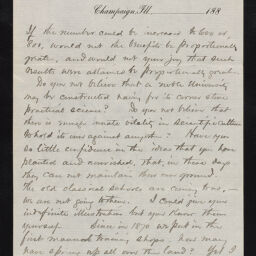 Champaign, Ill. 188
If the number could be increased to 600 or
800, would not the benefits be proportionally
great, and would not your joy that such
results were attained be proportionally great.
Do you not believe that a noble University
may be constructed having for its corner stone
practical science? Do you not believe that
there is enough innate vitality in scientific culture
to hold its own against any other? Have you
so little confidence in the ideas that you have
planted and nourished, that, in these days
they can not maintain their own ground?
The old classical schools are coming to us,—
we are not going to them. I could give you
infinite illustration but you know them
yourself. Since in 1870 we put in the
first manual training shops, how many
have sprung up all over the land? Yet I